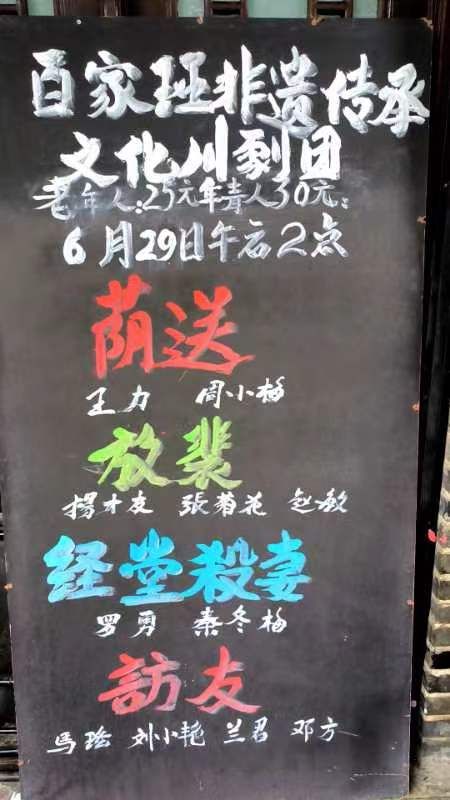 百家班非遗传承
文化川劇团
老年人:25元年青人30元:
6月29日午后2点
荫送
王力 周小梅
放裴
楊才友 張菊花 赵敏
经堂殺妻
罗勇 秦冬梅
訪友
馬玲 刘小艳 兰君 邓方